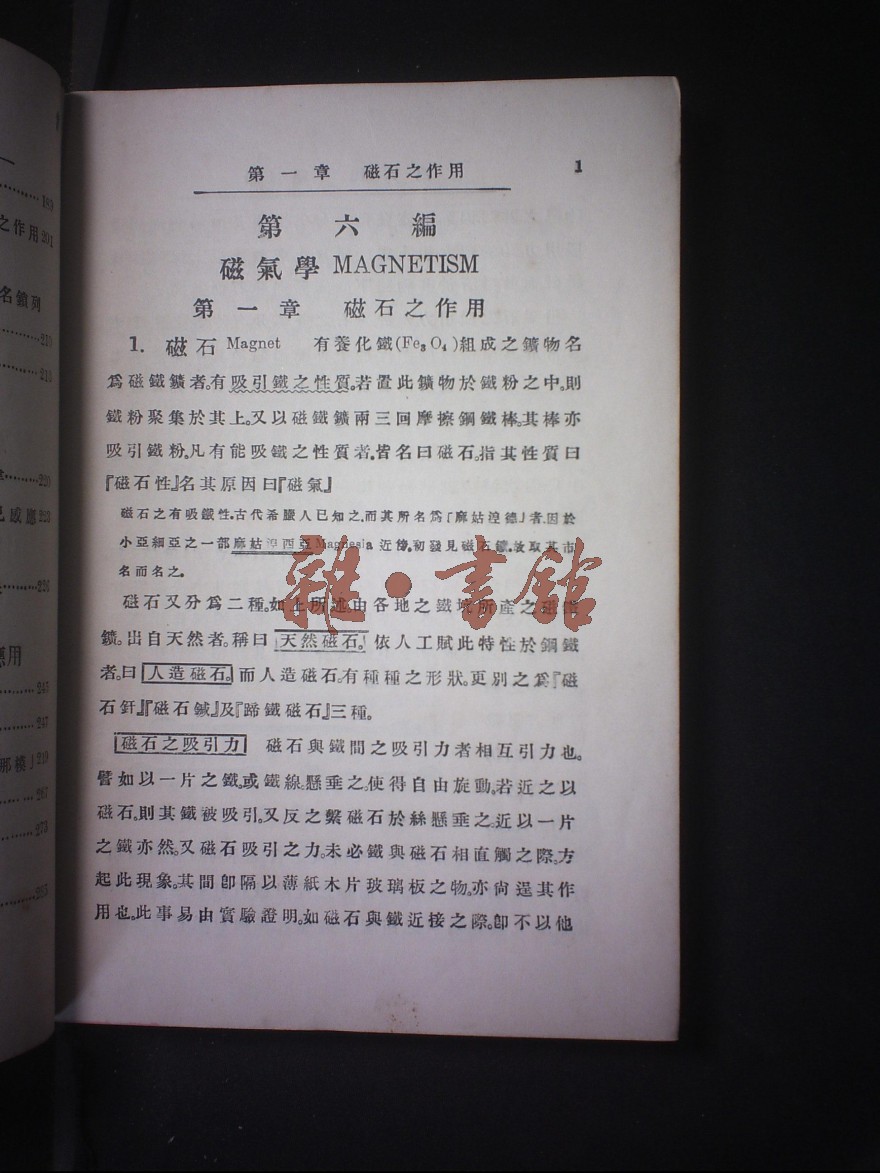 第一章 磁石之作用 1
第六編
磁氣學 MAGNETISM
第一章 磁石之作用
1. 磁石 Magnet 有養化鐵(Fe₃O₄)組成之鑛物名
爲磁鐵鑛者。有吸引鐵之性質。若置此鑛物於鐵粉之中。則
鐵粉聚集於其上。又以磁鐵鑛兩三回摩擦鋼鐵棒。其棒亦
吸引鐵粉。凡有能吸鐵之性質者。皆名曰磁石。指其性質曰
『磁石性』。名其原因曰『磁氣』。
磁石之有吸鐵性。古代希臘人已知之。而其所名爲「麻姑涅德」者。因於
小亞細亞之一部麻姑涅西亞 Magnesia 近傍。初發見磁石鑛。故取其市
名而名之。
磁石又分爲二種。如上所述。由各地之鐵坑所產之磁鐵
鑛。出自天然者。稱曰天然磁石。依人工賦此特性於鋼鐵
者。曰人造磁石。而人造磁石。有種種之形狀。更別之爲『磁
石釬』『磁石鍼』及『蹄鐵磁石』三種。
磁石之吸引力 磁石與鐵間之吸引力者相互引力也。
譬如以一片之鐵。或鐵線。懸垂之。使得自由旋動。若近之以
磁石。則其鐵被吸引。又反之繫磁石於絲懸垂之。近以一片
之鐵亦然。又磁石吸引之力。未必鐵與磁石相直觸之際。方
起此現象。其間卽隔以薄紙木片玻璃板之物。亦尙逞其作
用也。此事易由實驗證明。如磁石與鐵近接之際。卽不以他
雜·書館
之作用 201
名鑛列
220
223
226
應用
245
247
那模」219
267
273